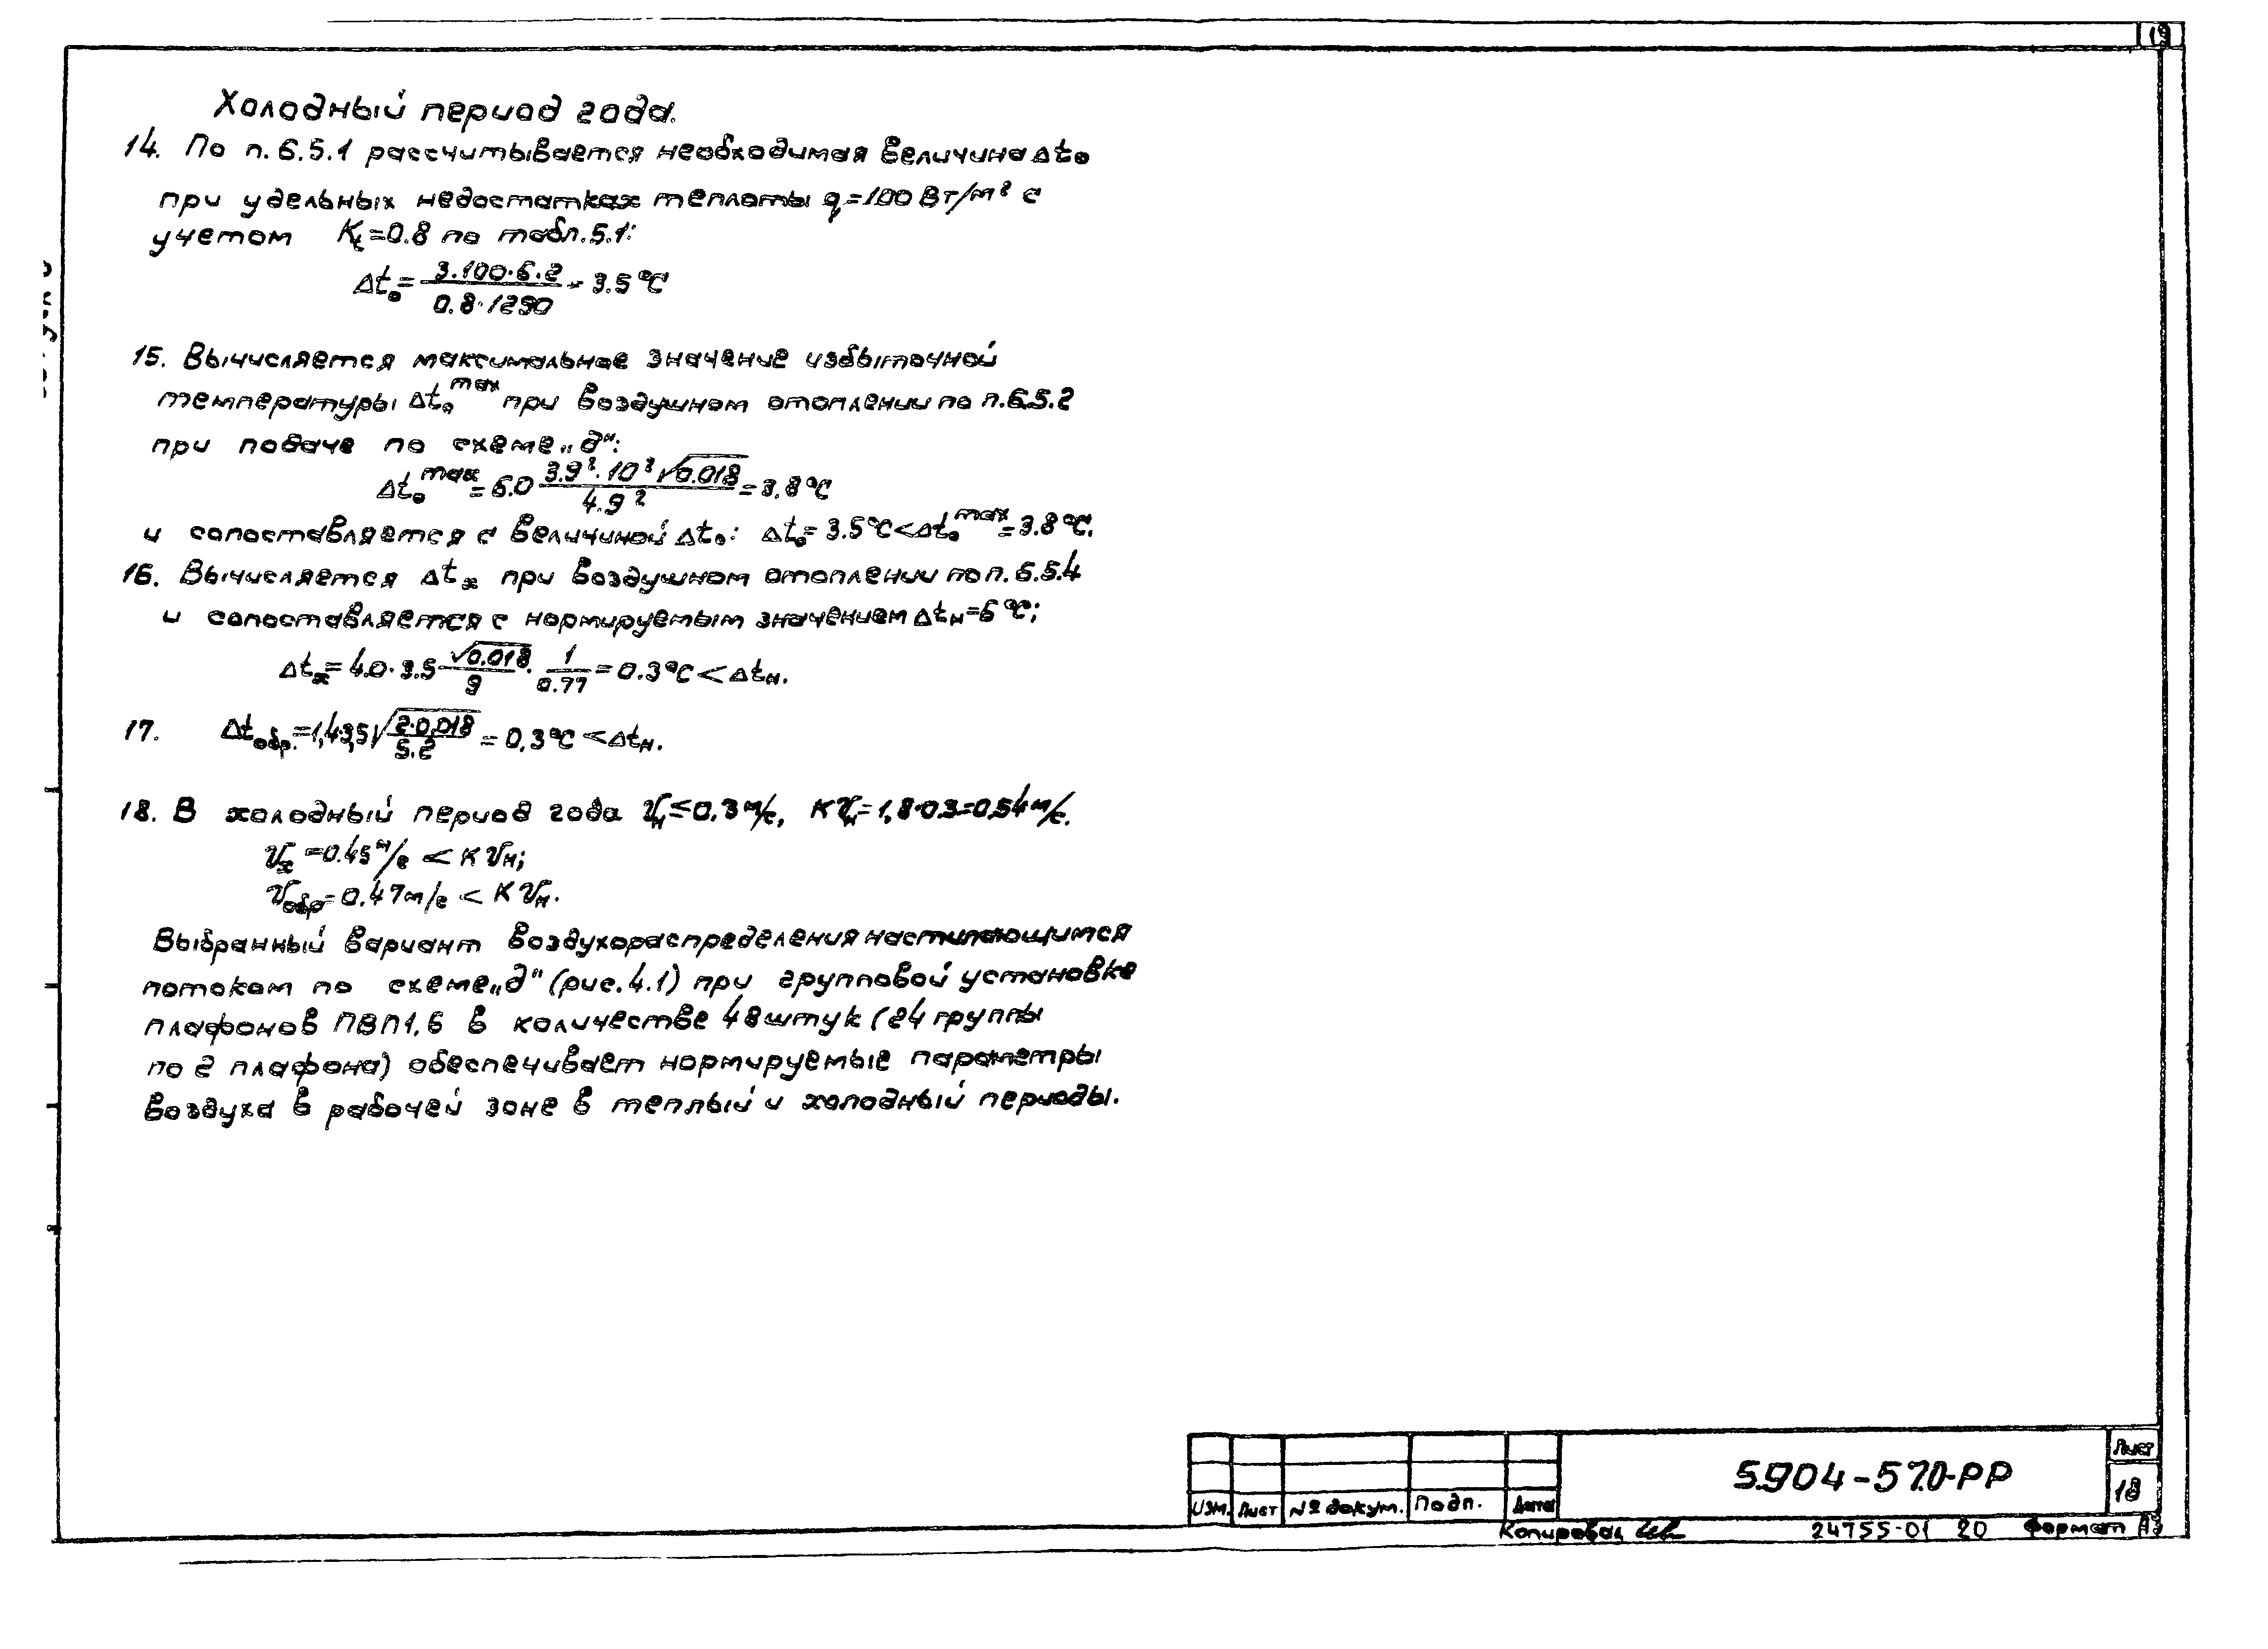 19
Холодный период года.
14. По п. 6.5.1 рассчитывается необходимая величина Δt₀
при удельных недостатках теплоты q=100 Вт/м² с
учетом Kt=0.8 по табл. 5.1:
Δt₀= 3·100·6.2 / 0.8·1290 = 3.5°C
15. Вычисляется максимальное значение избыточной
температуры Δt₀ᵐᵃˣ при воздушном отоплении по п. 6.5.2
при подаче по схеме „д":
Δt₀ᵐᵃˣ = 6.0 3.9²·10³√0.018 / 4.9² = 3.8°C
и сопоставляется с величиной Δt₀: Δt₀= 3.5°C < Δt₀ᵐᵃˣ = 3.8°C.
16. Вычисляется Δtх при воздушном отоплении по п. 6.5.4
и сопоставляется с нормируемым значением Δtн=6°C;
Δtх= 4.0·3.5 √0.018 / 9 · 1 / 0.77 = 0.3°C < Δtн.
17. Δtобр.=1,4·3,5√2·0,018 / 5.2 = 0,3°C < Δtн.
18. В холодный период года Vн≤0.3 м/с, KVн=1,8·0.3=0.54 м/с.
Vх=0.45 м/с < KVн;
Vобр=0.47 м/с < KVн.
Выбранный вариант воздухораспределения настилающимся
потоком по схеме „д" (рис. 4.1) при групповой установке
плафонов ПВП1,6 в количестве 48 штук (24 группы
по 2 плафона) обеспечивает нормируемые параметры
воздуха в рабочей зоне в теплый и холодный периоды.
Изм. Лист № докум. Подп. Дата
5.904-57.0-РР
Лист
18
Копировал
24755-01 20 Формат А3